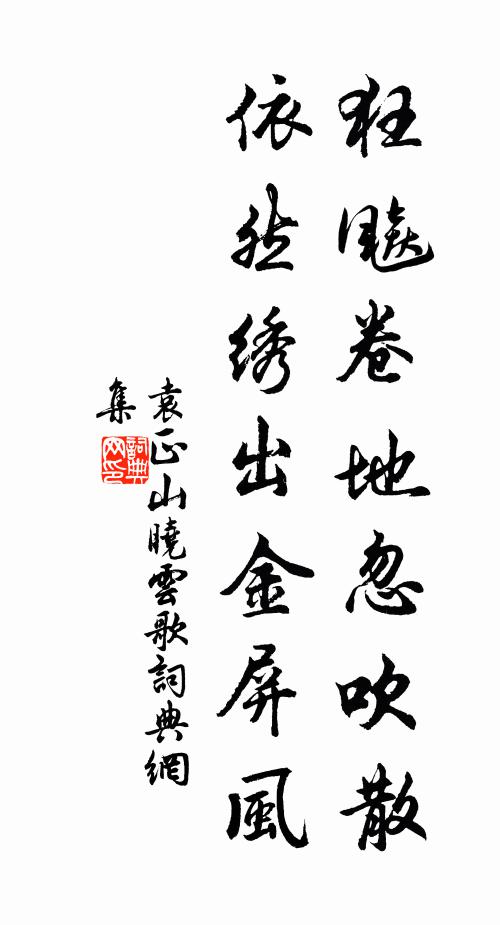 狂飚卷地忽吹散
依然绣出金屏風
袁正山曉雲歌詞典網
集
詞典
网印